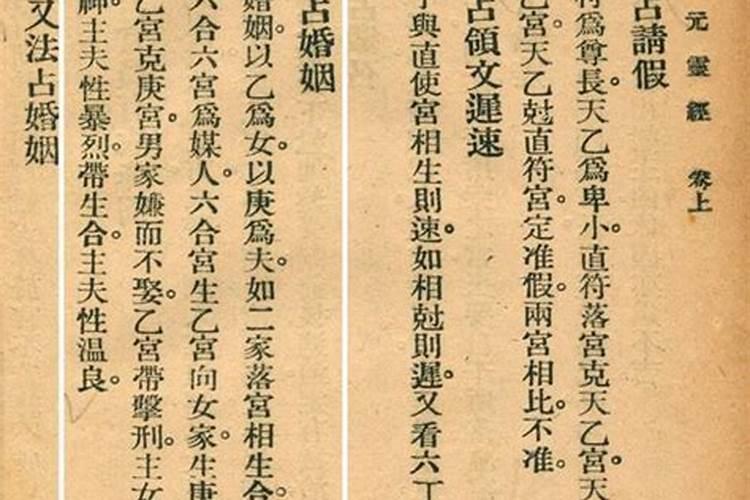 元靈經 卷上
占請假
符爲尊長。天乙爲卑小。直符落宮克天乙宮。天
乙宮。天乙尅直符宮。定准假。兩宮相比。不准。
占領文遲速
與直使宮相生則速。如相尅則遲。又看六丁
占婚姻
婚姻。以乙爲女。以庚爲夫。如二家落宮相生合。
六合六宮爲媒人。六合宮生乙宮向女家。生庚
乙宮克庚宮。男家嫌而不娶。乙宮帶擊刑。主女
神。主夫性暴烈。帶生合。主夫性温良。
又法占婚姻